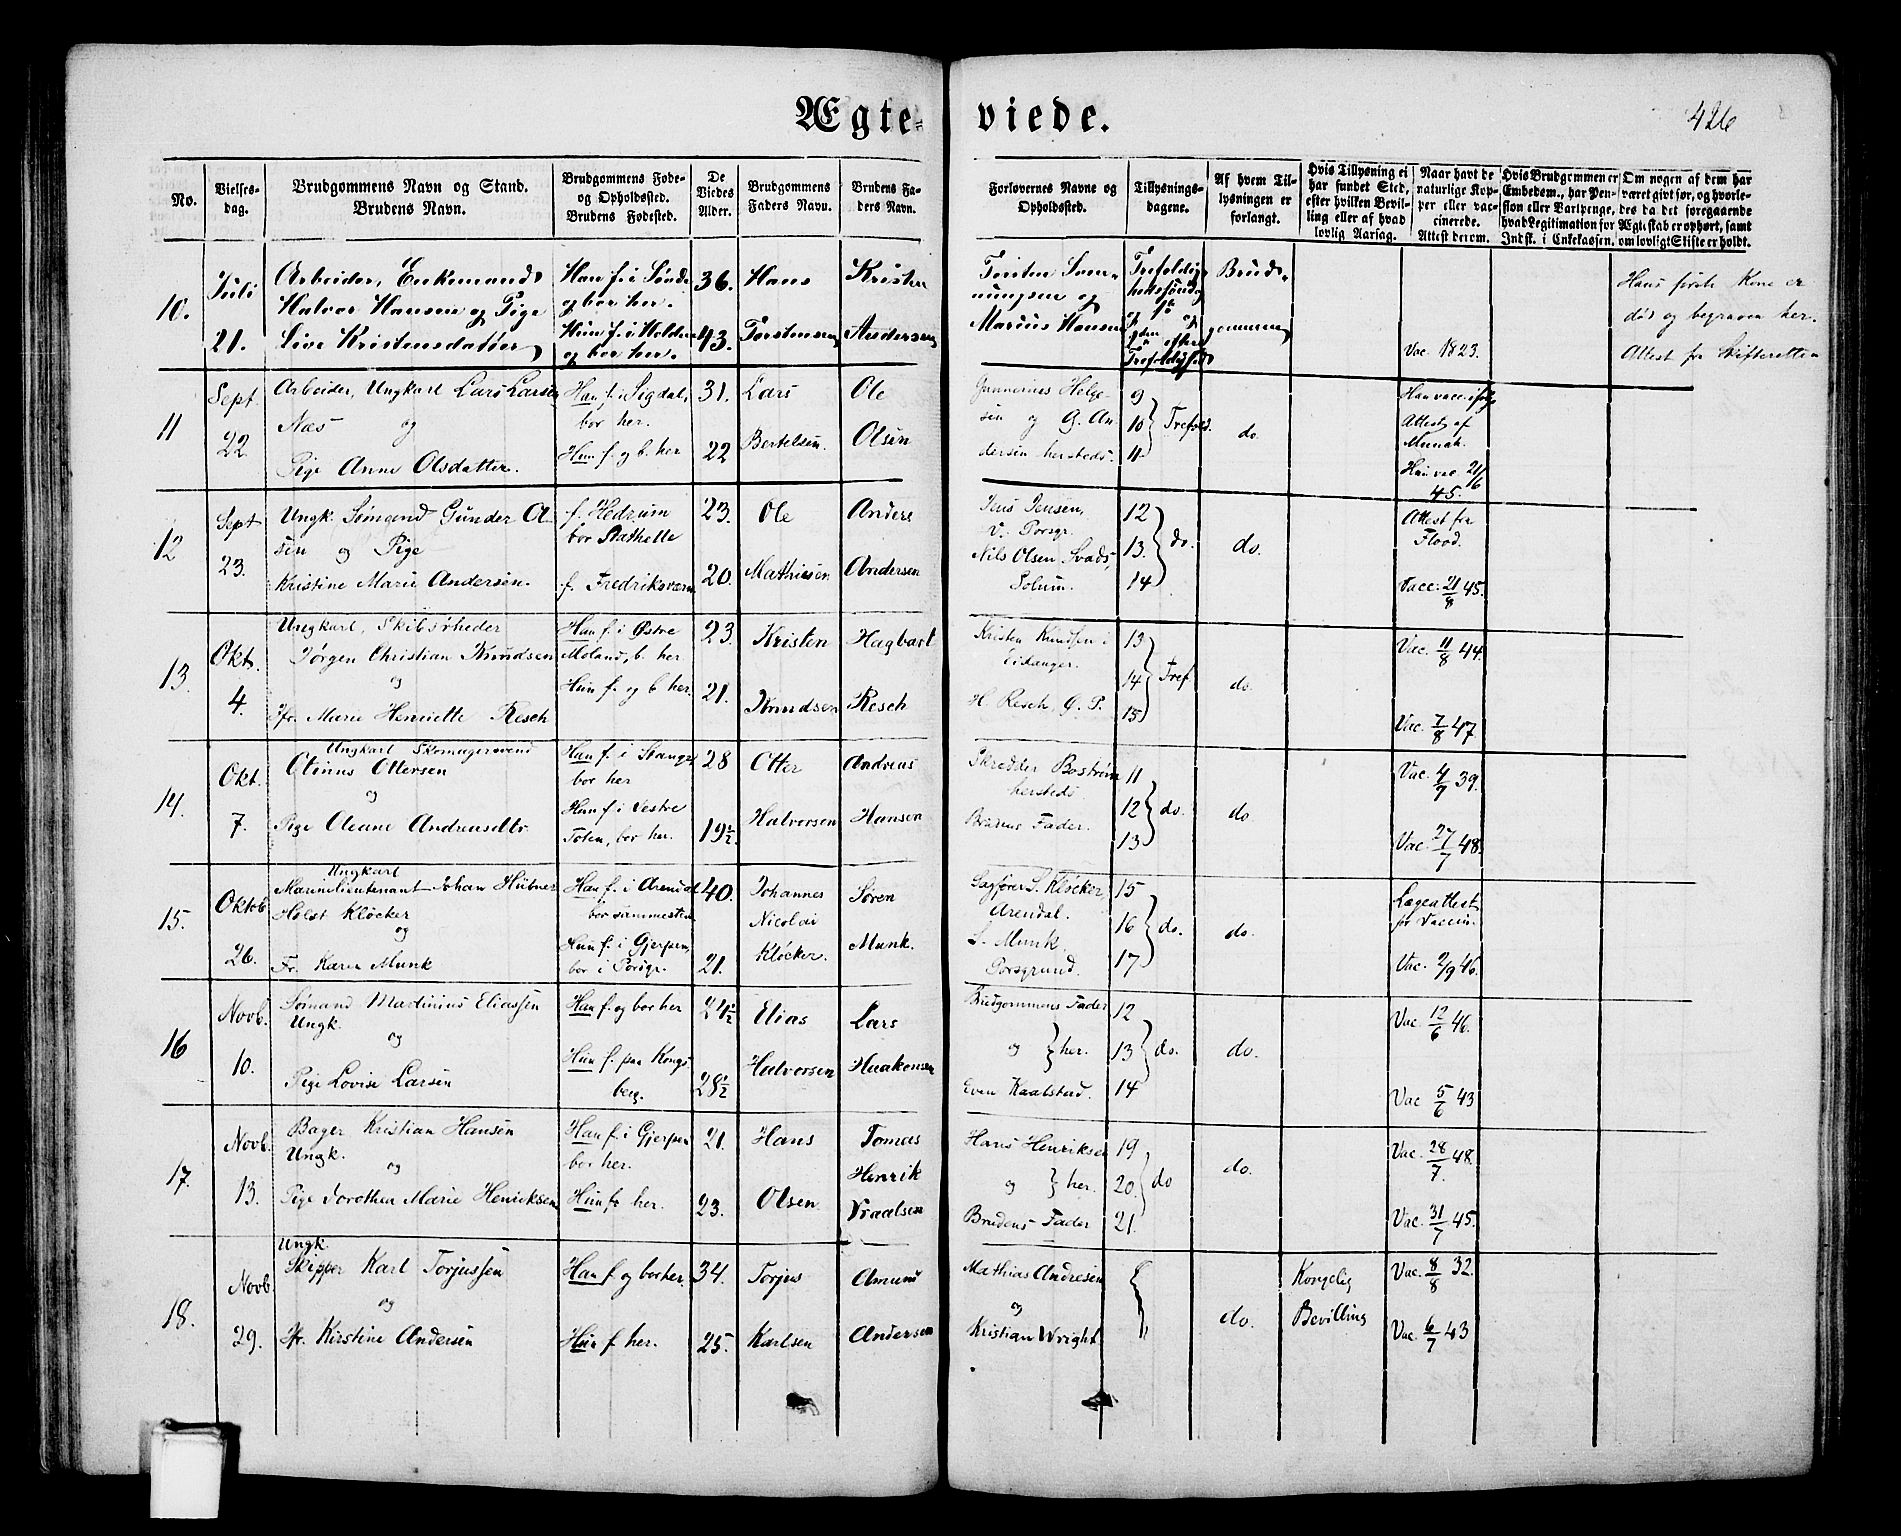 Ægte- viede.
426
No.
Vielses-
dag.
Brudgommens Navn og Stand.
Brudens Navn.
Brudgommens Føde-
og Opholdssted.
Brudens Fødested.
De
Viedes
Alder.
Brudgommens
Faders Navn.
Brudens Fa-
ders Navn.
Forlovernes Navne og
Opholdssted.
Tillysnings-
dagene.
Af hvem Til-
lysningen er
forlangt.
Hvis Tillysning ei
har fundet Sted,
efter hvilken Bevil-
ling eller af hvad
lovlig Aarsag.
Naar havt de
naturlige Kop-
per eller vac-
cinerede.
Attest derom.
Hvis Brudgommen er
Embedsm., har Pen-
sion eller Vartpenge,
hvad Legitimation for
Indsk. i Enkekassen.
Om nogen af dem har
været gift før, og hvorle-
des da det foregaaende
Ægteskab er ophørt, samt
om lovligt Skifte er holdt.
10.
Juli
21.
Arbeider, Enkemand
Halvor Hansen og Pige
Live Kristensdatter
Han f. i
og bor her.
Hun f. i Holden
og bor her.
36.
43.
Hans
Torstensen
Kristen
Andersen
og
Marius Hansen
Trefoldig-
hedssøndag
efter
Brud-
gommen
Vac. 1823.
Hans første Kone er
død og begraven her.
Attest fra Skifteretten
11
Sept.
22.
Arbeider, Ungkarl Lars Larsen
Næs og
Pige Anne Olsdatter.
Han f. i Sigdal,
bor her.
Hun f. og b. her
31.
22
Lars
Bertelsen.
Ole
Olsen
Gunnerius Helge-
sen og G. An-
dersen hersteds.
9
10
11.
Trefold.
do.
Attest af
Munk.
Hun vac. 21/6
45.
12
Sept
23.
Ungk. Sømand Gunder Ol-
sen og Pige
Kristine Marie Andersen.
f. Hedrum
bor Stathelle
f. Fredriksværn
23.
20.
Ole
Mathiesen
Anders
Andersen
Jens Jensen,
V. Porsgr.
Nils Olsen Svads,
Solum.
12
13.
14
do.
do.
Attest fra
Flood.
Vacc. 21/8 45.
13.
Okt.
4.
Ungkarl, Skibsrheder
Jørgen Christian Knudsen
og
Jfr. Marie Henriette Resch
Han f. i Østre
Moland, b. her
Hun f. og b. her.
23
21.
Kristen
Knudsen
Hagbart
Resch
Kristen Knudsen i
Eidanger.
H. Resch, Ø. P.
13
14
15
Tref.
do.
Vac. 11/8 44.
Vac. 7/8 47
14.
Okt.
7.
Ungkarl Skomagersvend
Otinus Ottersen
og
Pige Oleane Andreasdtr.
Han f. i Stange
bor her
Hun f. i Vestre
Toten, bor her.
28
19½
Otter
Halvorsen
Andreas
Hansen
Skredder Bostrøm
hersteds
Brudens Fader.
11
12
13
do.
do
Vac. 4/7 39.
Vac. 27/7 48.
15.
Oktob
26.
Ungkarl
Marinelieutenant Johan Hübner
Holst Kløcker
og
Fr. Karen Munk
Han f. i Arendal
bor sammesteds
Hun f. i Gjerpen,
bor i Porsgr.
40.
21.
Johannes
Nicolai
Kløcker.
Søren
Munk.
Sagfører S. Kløcker,
Arendal.
S. Munk.
Porsgrund.
15
16
17
do.
do.
Lægeattest
for Vaccin.
Vac. 2/9 46.
16
Novb.
10.
Sømand Martinius Eliassen
Ungk.
og
Pige Lovise Larsen
Han f. og bor her
Hun f. paa Kongs
berg.
24½
28½
Elias
Halvorsen
Lars
Haakensen
Brudgommens Fader
og } her.
Even Kaalstad.
12
13
14
do.
do.
Vac. 12/6 46.
Vac 5/6 43
17.
Novb.
13.
Bager Kristian Hansen
Ungk.
og
Pige Dorothea Marie Henriksen
Han f. i Gjerpen
bor her.
Hun f. her.
21.
23.
Hans
Olsen
Tomas
Henrik
Vraalsen
Hans Henriksen
og } her.
Brudens Fader
19
20.
21.
do
do.
Vac. 28/7 48.
Vac. 31/7 45.
18.
Novb.
29.
Ungk.
Skipper Karl Torjussen
og
Jfr. Kirstine Andersen
Han f. og bor her.
Hun f. her.
34.
25.
Torjus
Karlsen
Amund
Andersen
Mathias Andresen
og
Kristian Wright
do.
Kongelig
Bevilling
Vac. 8/8 32.
Vac. 6/7 43